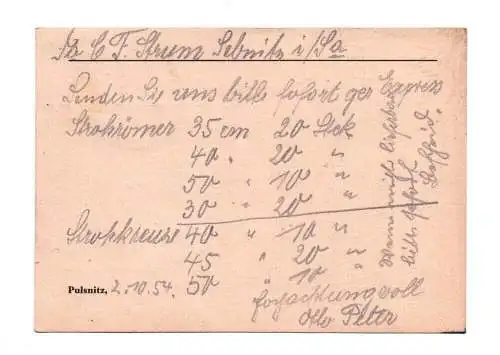 Fa C. F. Sturm Sebnitz i/Sa
Senden Sie uns bitte sofort per Express
Strohrömer 35 cm 20 Stck
40 " 20 "
50 " 10 "
30 " 20 "
Strohkreuze 40 " 10 "
45 " 20 "
50 " 10 "
Pulsnitz, 2.10.54.
Hochachtungvoll
Otto Peter
Wenn nicht lieferbar
bitte sofort
Bescheid.